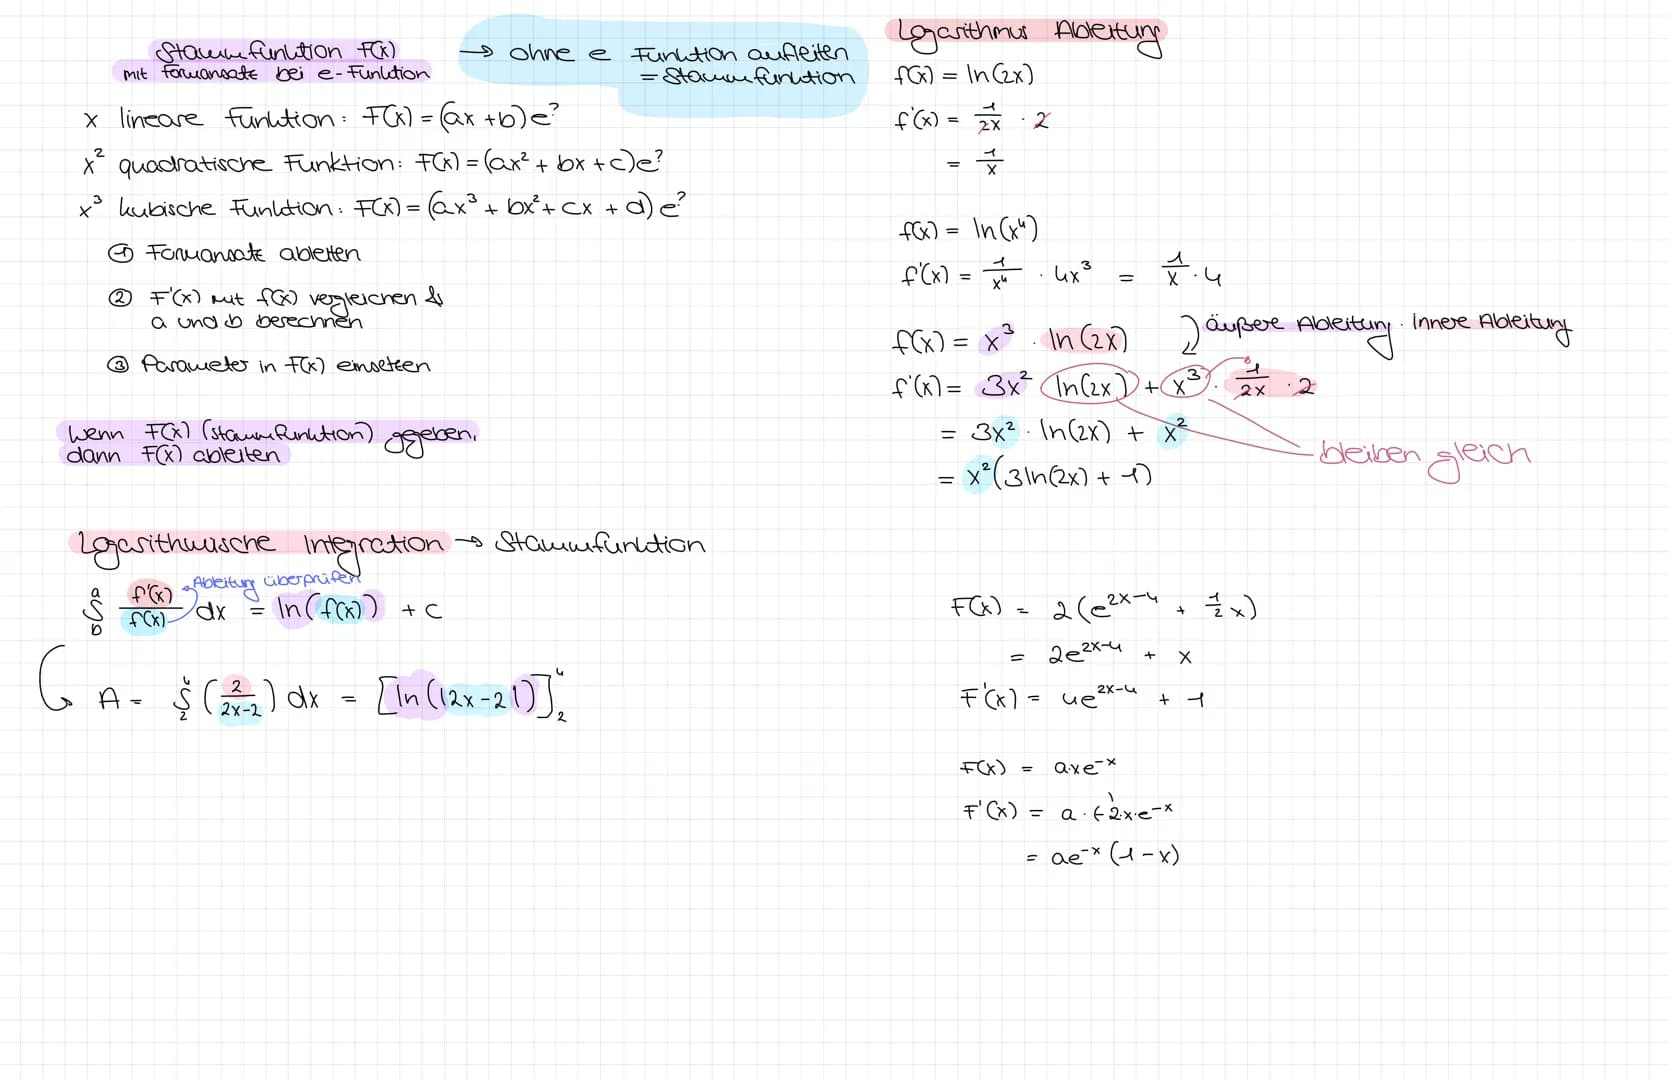 Stammfunktion F(x)
mit Formansatz bei e-Funktion
→ ohne e Funktion aufleiten
= Stammfunktion
x lineare Funktion: F(x) = (ax + b)e^?
x² quadratische Funktion: F(x) = (ax² + bx + c)e^?
x³ kubische Funktion: F(x) = (ax³ + bx² + cx + d)e^?
① Formansatz ableiten
② F'(x) mit f(x) vergleichen &
a und b berechnen
③ Parameter in F(x) einsetzen
Wenn F(x) (Stammfunktion) gegeben,
dann F(x) ableiten
Logarithmische Integration → Stammfunktion
Ableitung überprüfen
∫_b^a f'(x)/f(x) dx = ln(f(x)) + c
A = ∫_2^4 (2/(2x-2)) dx = [ln(|2x-2|)]_2^4
Logarithmus Ableitung
f(x) = ln(2x)
f'(x) = 1/2x · 2
= 1/x
f(x) = ln(x⁴)
f'(x) = 1/x⁴ · 4x³ = 1/x · 4
f(x) = x³ · ln(2x) äußere Ableitung · Innere Ableitung
f'(x) = 3x² ln(2x) + x³ · 1/2x · 2
= 3x² · ln(2x) + x²
bleiben gleich
= x²(3ln(2x) + 1)
F(x) = 2(e^(2x-4) + 1/2 x)
= 2e^(2x-4) + x
F'(x) = 4e^(2x-4) + 1
F(x) = axe^-x
F'(x) = a · (-2·x·e^-x
= ae^-x (1-x)